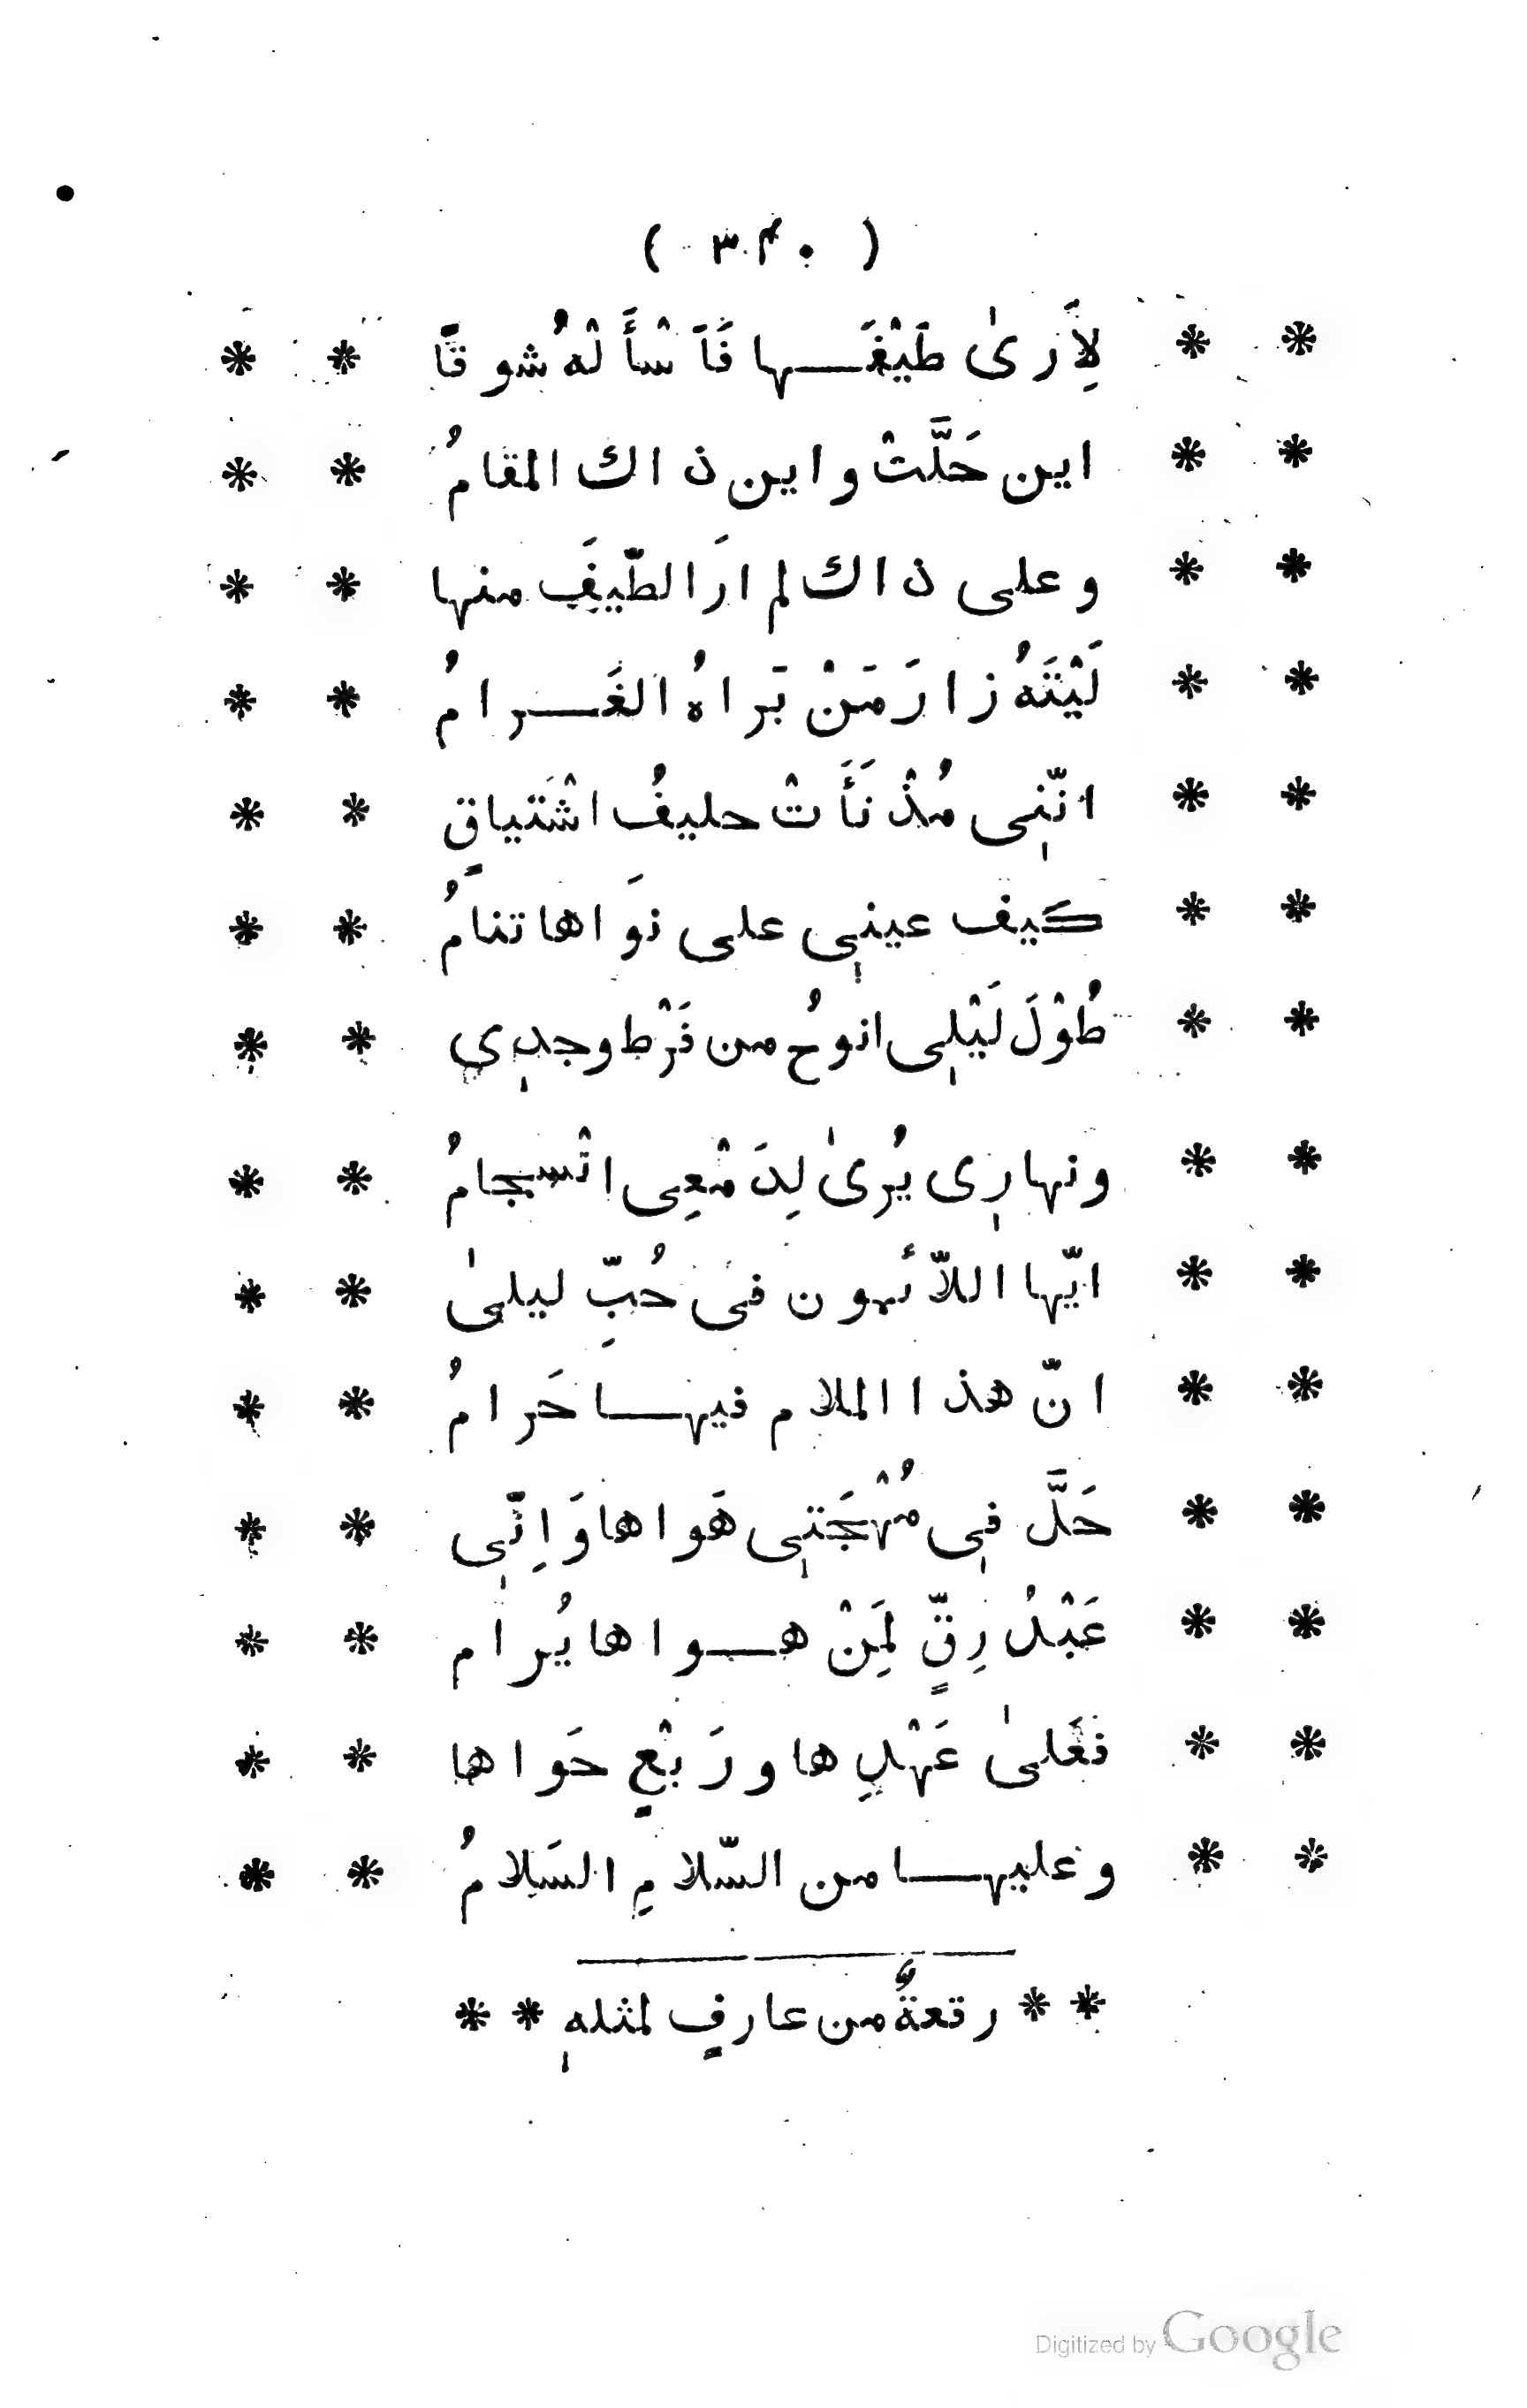 ( ٣٤٠ )
* * لِأَرىٰ طَيْفَـــها فَاَسْأَلْهُ شوقًا * *
* * اين حَلَّتْ واين ذاك المقامُ * *
* * وعلى ذاك لم ارَ الطّيفَ منها * *
* * لَيْتَهُ زارَ مَنْ بَراهُ الغَـــرامُ * *
* * انّنِى مُذْ نَأَتْ حليفُ اشْتياقٍ * *
* * كيف عينِى على نوَاها تنامُ * *
* * طُوْلَ لَيْلِى انوحُ من فَرْط وجدِي * *
* * ونهارِى يُرىٰ لِدَمْعِى انْسجامُ * *
* * ايّها اللّائمون فى حُبِّ ليلىٰ * *
* * انّ هذا الملام فيهـــا حَرامُ * *
* * حَلَّ فِى مُهْجَتِى هَواها وَاِنّنِى * *
* * عَبْدُ رِقٍّ لِمَنْ هـــواها يُرام * *
* * فَعَلىٰ عَهْدِها ورَبْعٍ حَواها * *
* * وعليهـــا من السّلامِ السَلامُ * *
* * رقعةٌ من عارفٍ لمثلهِ * *
Digitized by Google